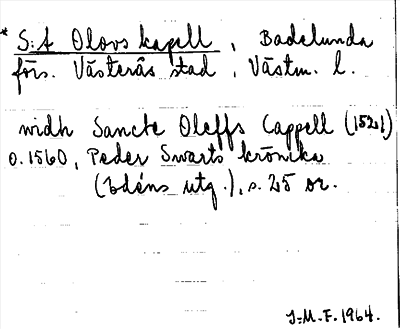 * S:t Olovs kapell, Badelunda
förs. Västerås stad, Västm. l.
widh Sancte Oleffs Cappell (1521)
o. 1560, Peder Swarts krönika
(Edéns utg.), s. 25 or.
J.M.F. 1964.